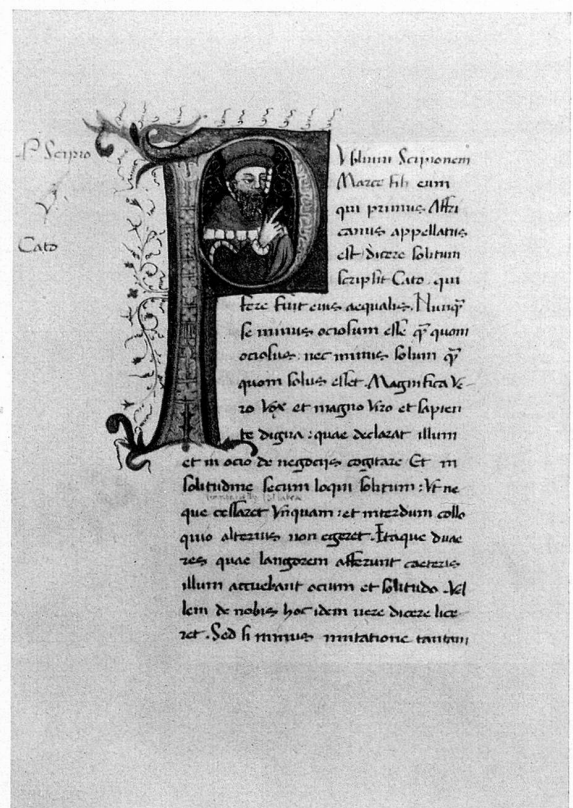 P. Scipio
Cato
P
Vblium Scipionem
Marce fili eum
qui primus Affri
canus appellatus
est dicere solitum
scripsit Cato. qui
fere fuit eius aequalis. Nunq̃
se minus ociosum esse q̃ quom
ociosus: nec minus solum q̃
quom solus esset. Magnifica ve-
ro vox et magno viro et sapien
te digna: quae declarat illum
et in ocio de negociis cogitare Et in
solitudine secum loqui solitum: Vt ne
que cessaret vnquam: et interdum collo
quio alterius non egeret. Itaque duae
res quae langorem afferunt caeteris
illum accuebant ocium et solitudo. Vel
lem de nobis hoc idem uere dicere lice
ret. Sed si minus imitatione tantam